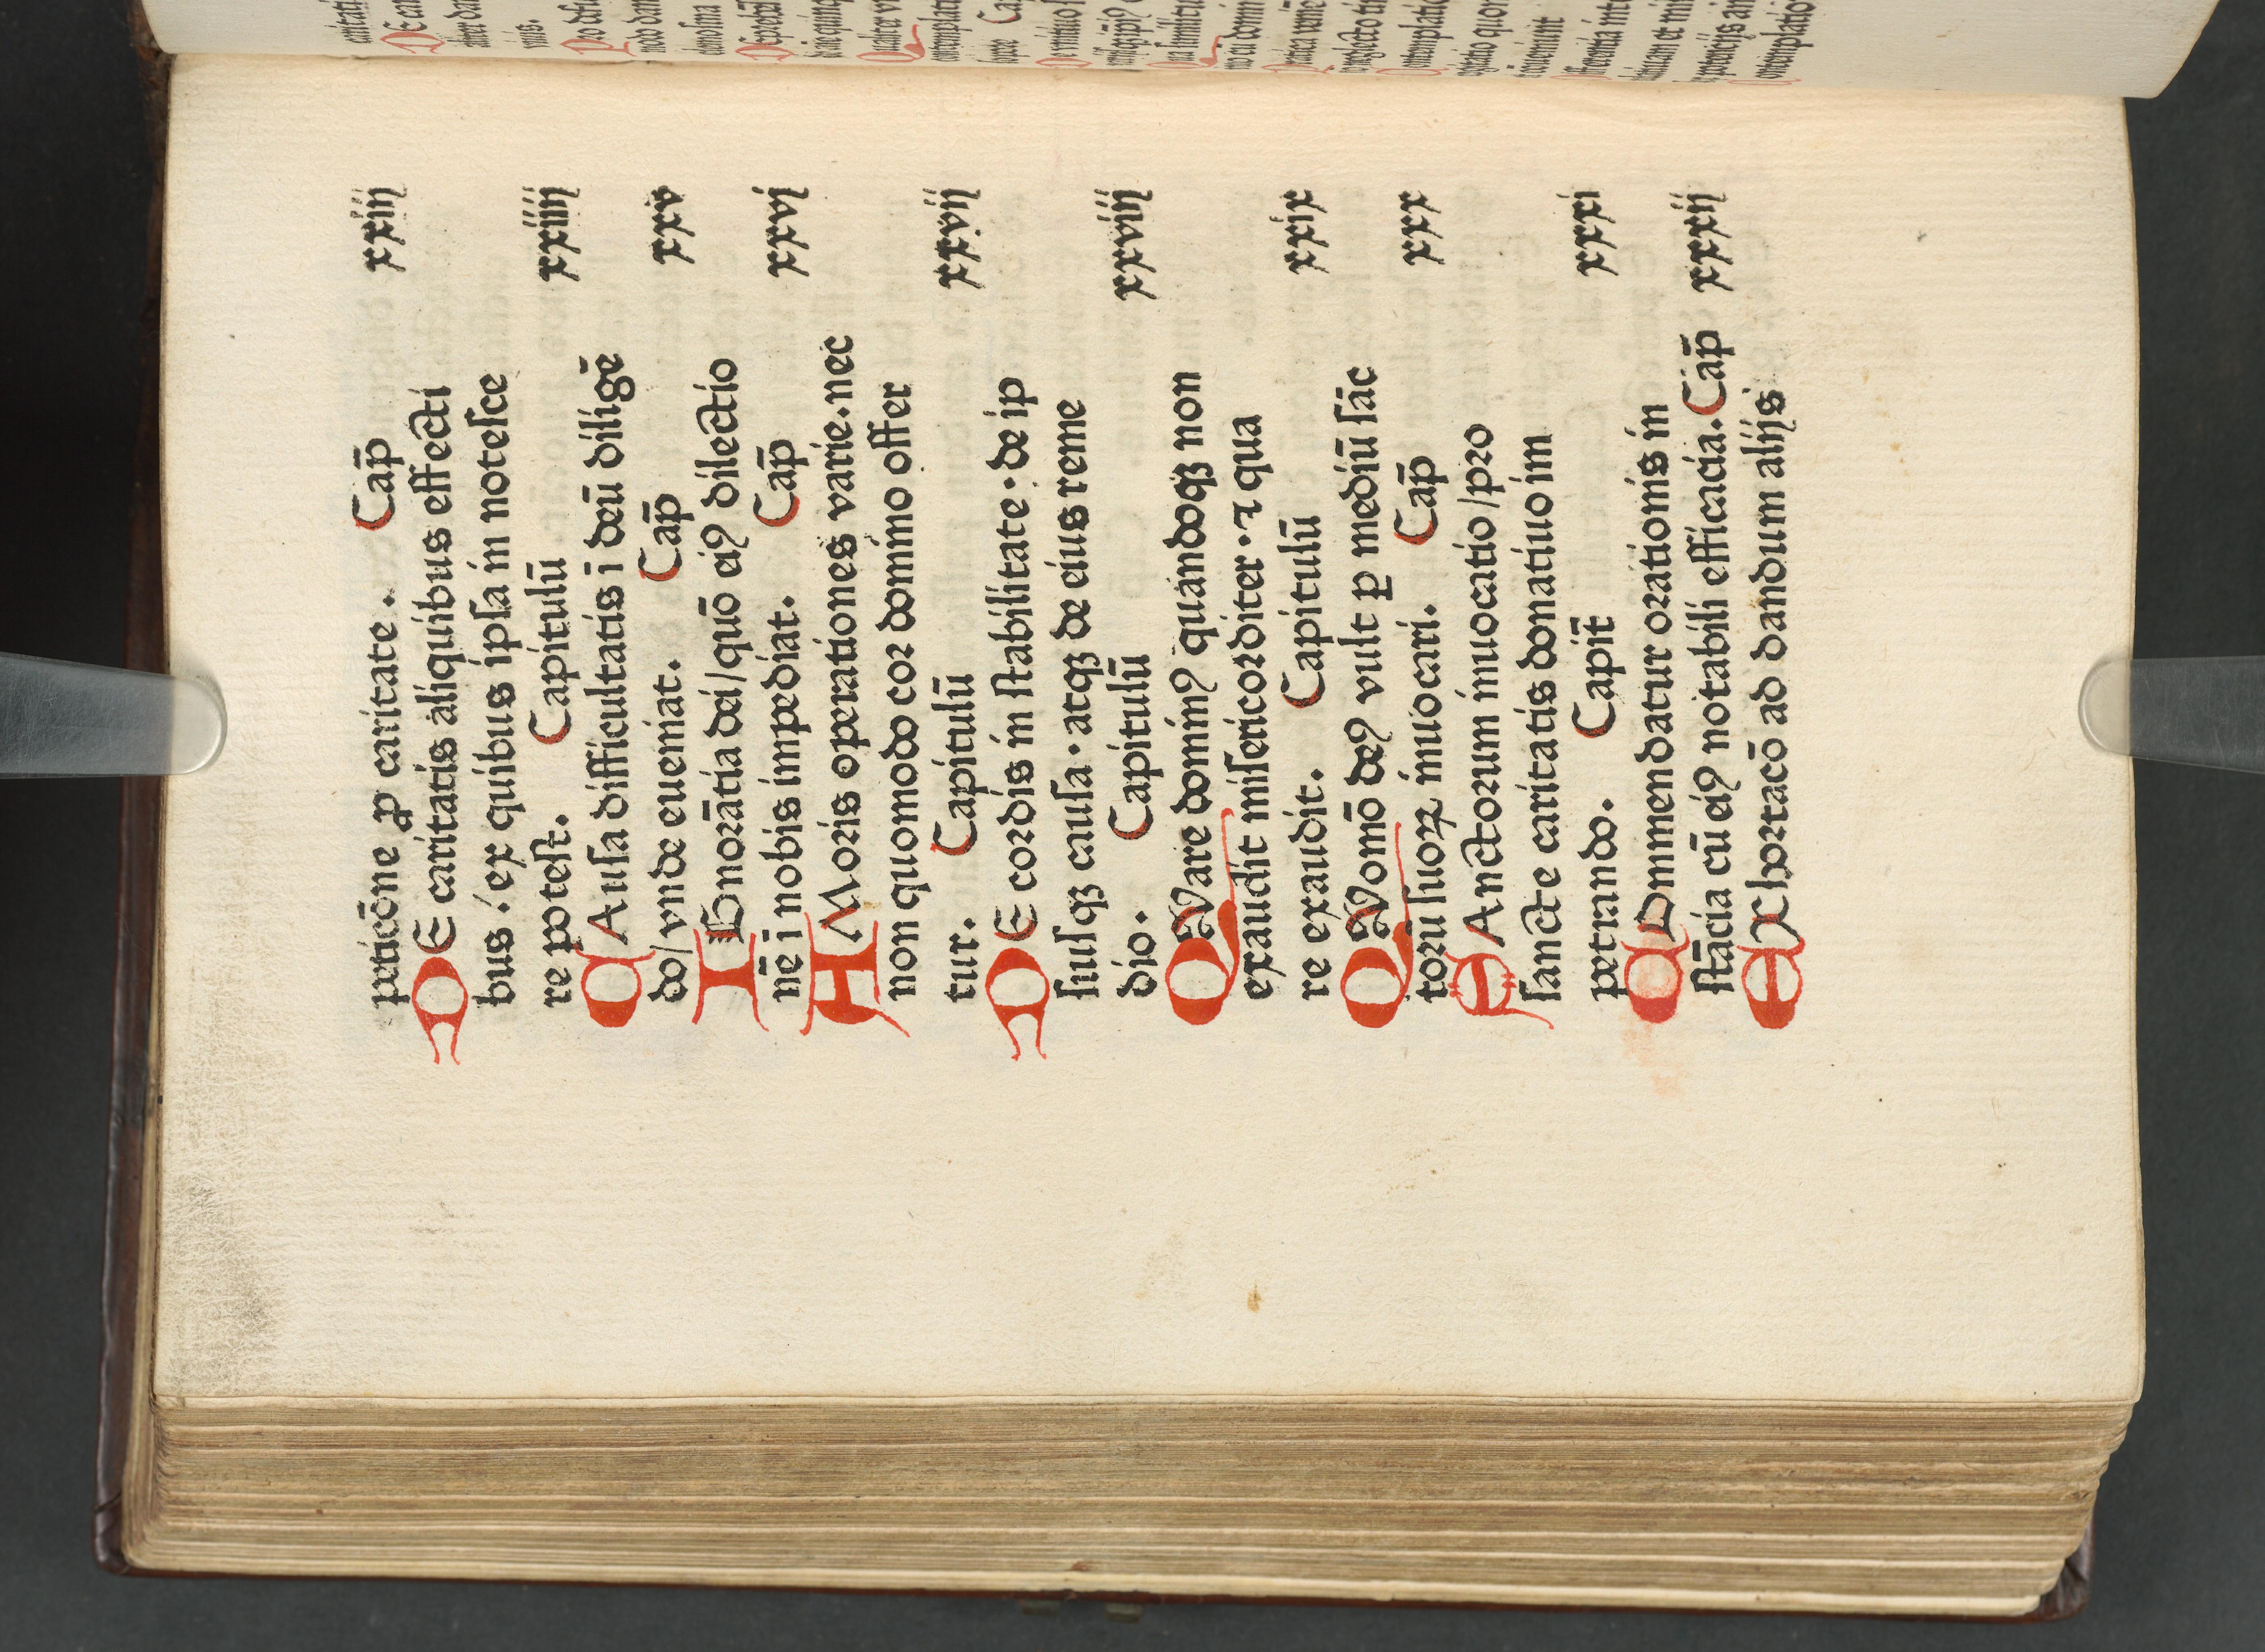 peticōne ꝓ caritate. Cap̄ xxiij
DE caritatis aliquibus effecti
bus :/ex quibus ipſa innoteſce
re poteſt. Capitulū xxiiij
CAuſa difficultatis ī deū diligē
do/vnde eueniat. Cap̄ xxv
IGnorātia dei/quō eiꝰ dilectio
nē ī nobis impediat. Cap̄ xxvj
AMoris operationes varie.nec
non quomodo cor domino offer
tur. Capitulū xxvij
DE cordis inſtabilitate.de ip
ſiuſqꝫ cauſa.atqꝫ de eius reme
dio. Capitulū xxviij
QVare dominꝰ quandoqꝫ non
exaudit miſericorditer.ꝛ qua
re exaudit. Capitulū xxix
QVomō deꝰ vult ꝑ mediū ſāc
torū ſuoꝝ inuocari. Cap̄ xxx
SAnctorum inuocatio/pro
ſancte caritatis donatiuo im
petrando. Capit̄ xxxi
COmmendatur orationis in
ſtācia cū eiꝰ notabili efficacia. Cap̄ xxxij
EXhortacō ad dandum alijs